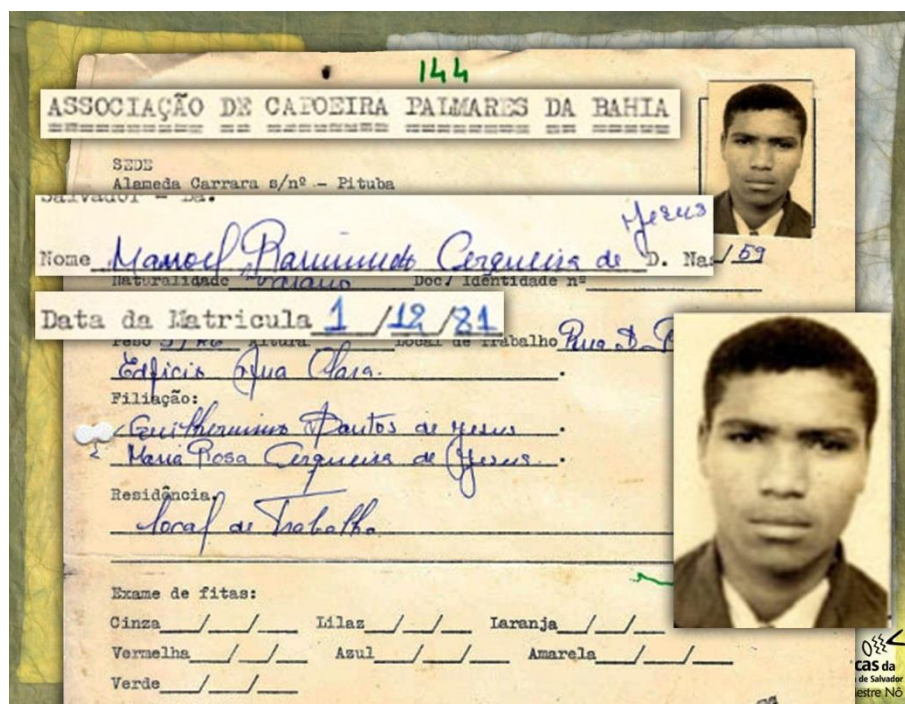 144
ASSOCIAÇÃO DE CAPOEIRA PALMARES DA BAHIA
SEDE
Alameda Carrara s/nº - Pituba
Salvador - Ba.
Nome Manoel Raimundo Cerqueira de Jesus D. Nas / 59
Naturalidade Baiano Doc. Identidade nº
Data da Matricula 1 /12 /81
Peso 57 KG Altura Local de Trabalho Rua D.
Edficio Ana Clara.
Filiação:
Guilhermino Santos de Jesus.
Maria Rosa Cerqueira de Jesus.
Residência
local de Trabalho
Exame de fitas:
Cinza / / Lilaz / / Laranja / /
Vermelha / / Azul / / Amarela / /
Verde / /
cas da
de Salvador
estre Nô